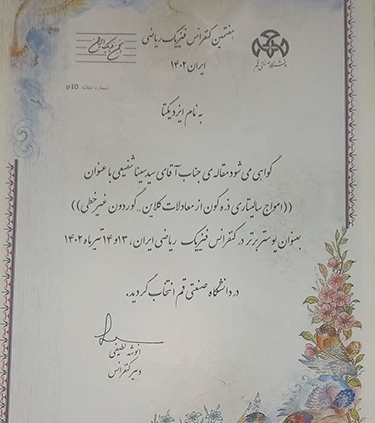 هفتمین کنفرانس فیزیک ریاضی
ایران ۱۴۰۲
دانشگاه صنعتی قم
شماره مقاله p10
به نام ایزد یکتا
گواهی می شود مقاله ی جناب آقای سید سینا شفیعی با عنوان
((امواج سالیتاری ذره گون از معادلات کلاین_گوردون غیرخطی))
بعنوان پوستر برتر در کنفرانس فیزیک ریاضی ایران، ۱۳ و ۱۴ تیر ماه ۱۴۰۲
در دانشگاه صنعتی قم انتخاب گردید.
انوشه لطیفی
دبیر کنفرانس